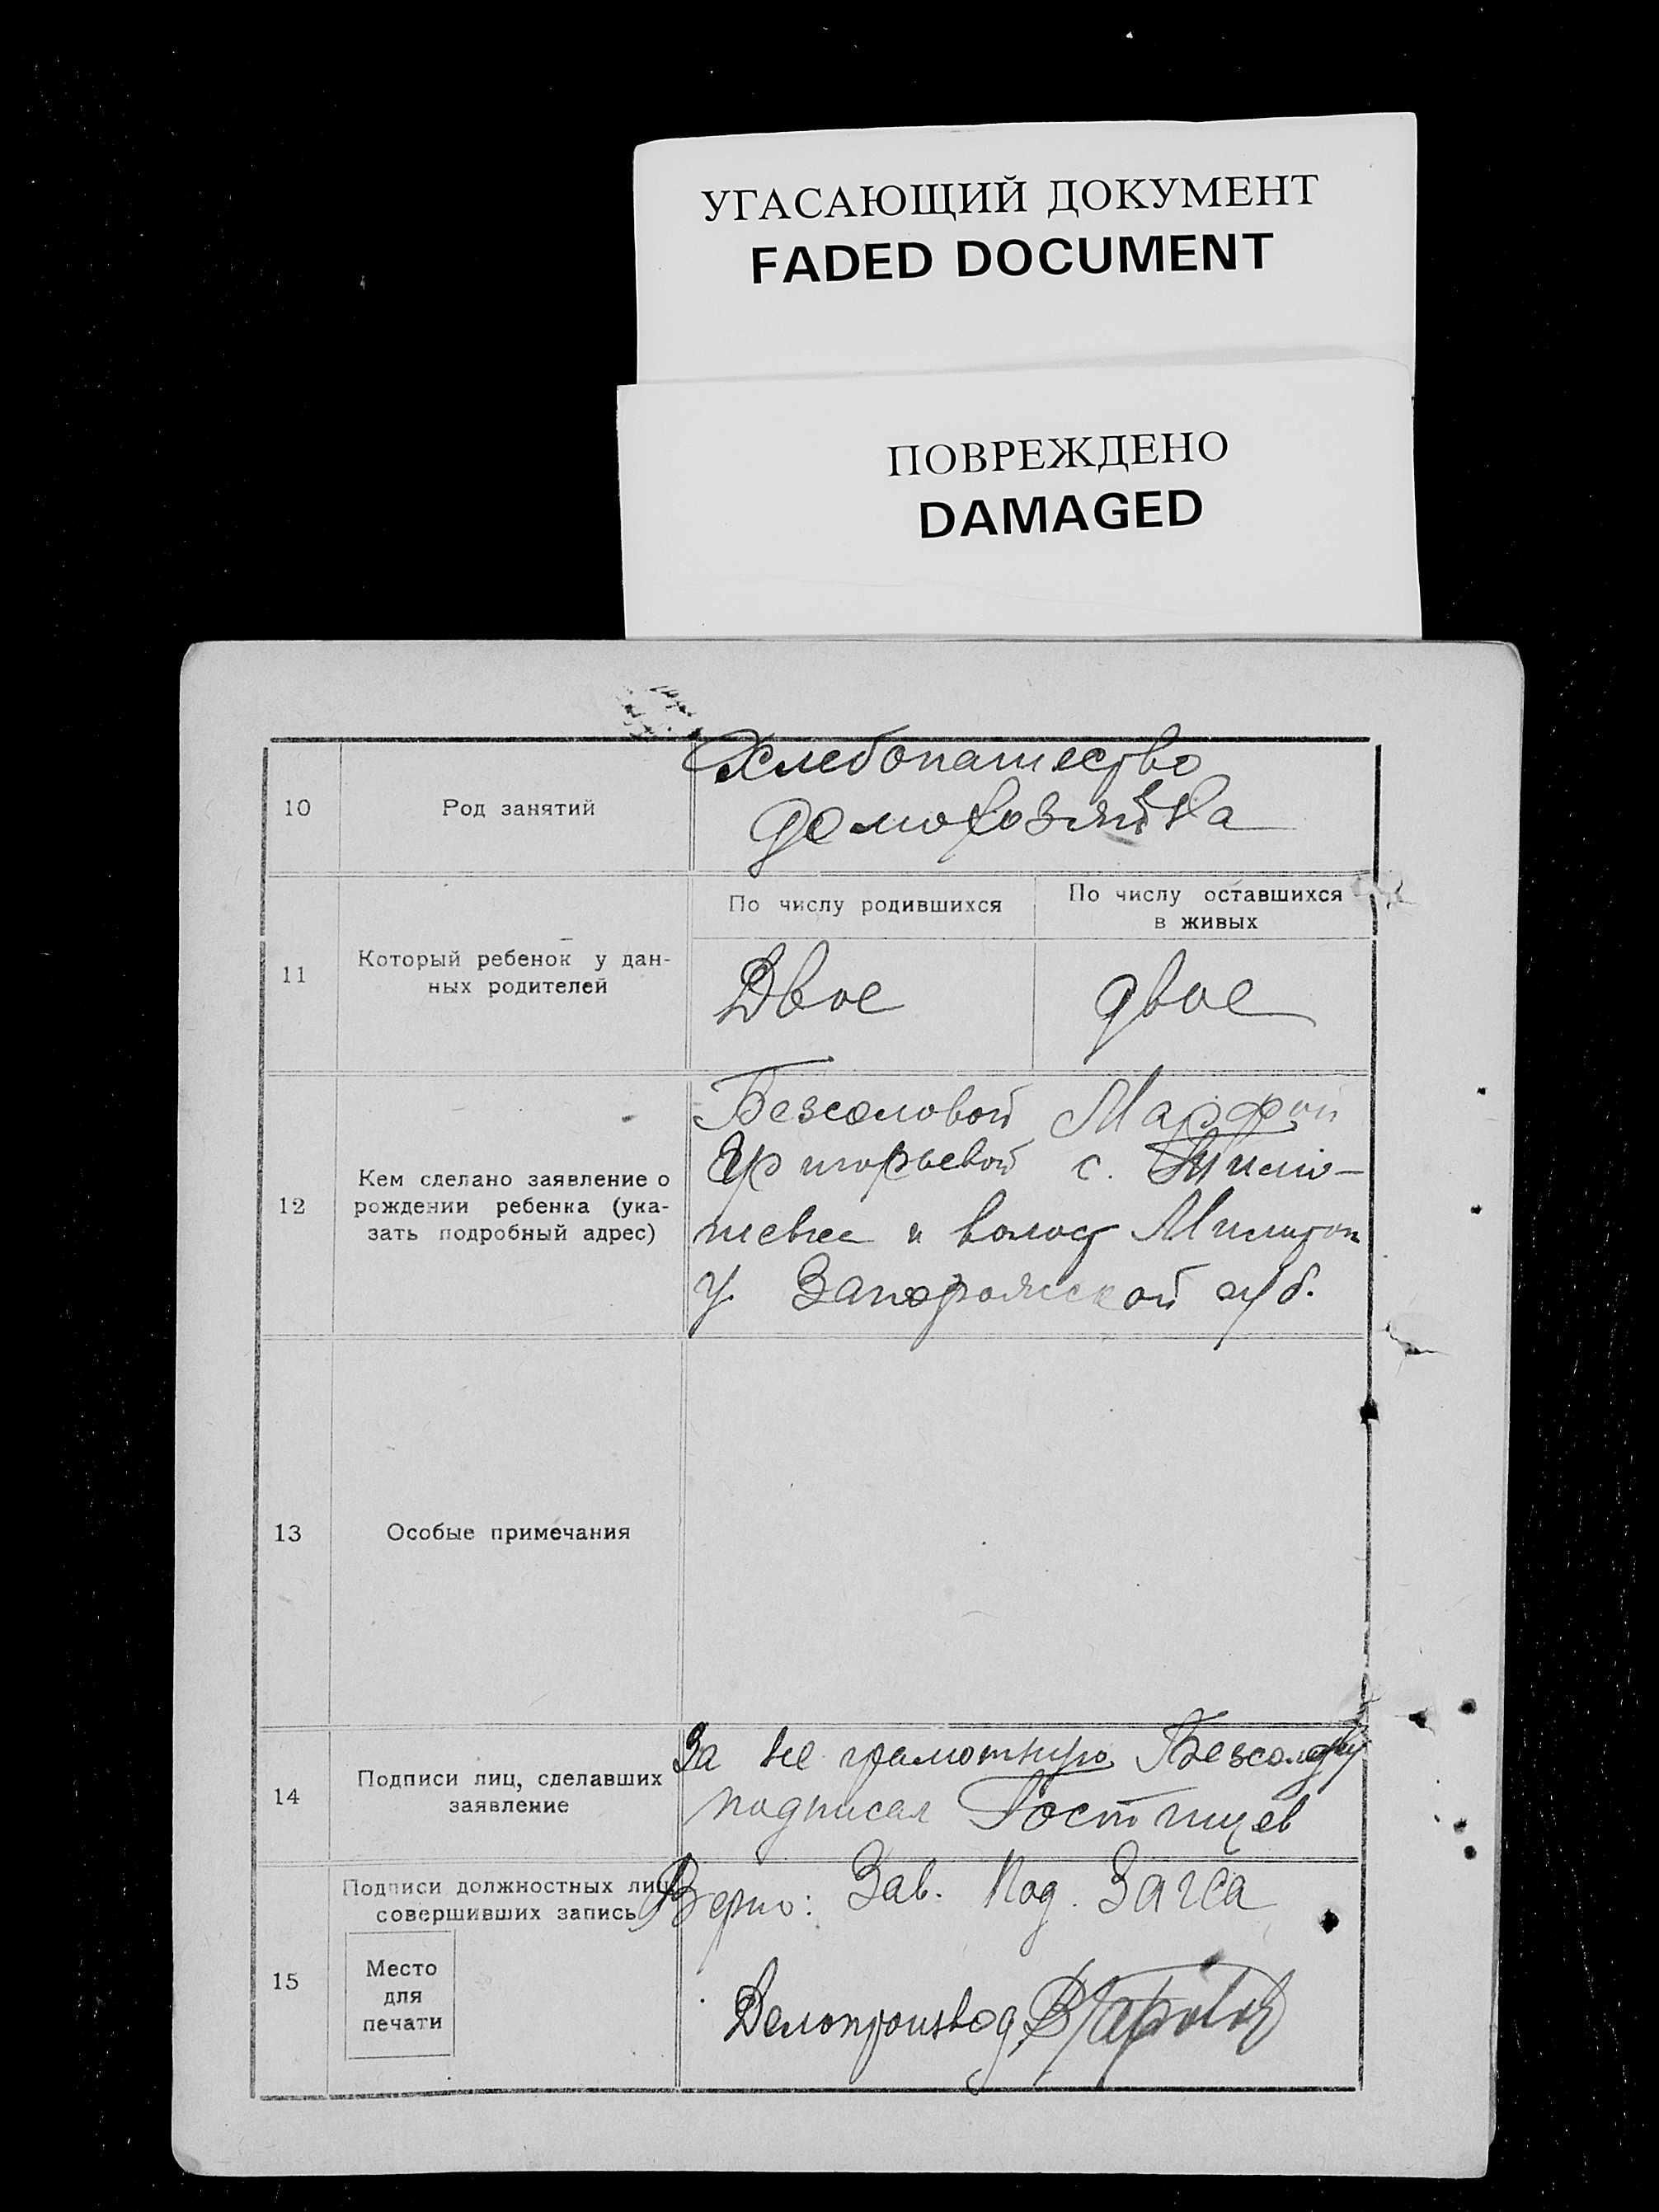 УГАСАЮЩИЙ ДОКУМЕНТ
FADED DOCUMENT
ПОВРЕЖДЕНО
DAMAGED
10
Род занятий
Хлебопашество
домохозяйка
11
Который ребенок у дан-
ных родителей
По числу родившихся
Двое
По числу оставшихся
в живых
двое
12
Кем сделано заявление о
рождении ребенка (ука-
зать подробный адрес)
Безсоловой Марфой
Григорьевой с. Тимо-
шевке и волост Мелитоп
у. Запорожской губ.
13
Особые примечания
14
Подписи лиц, сделавших
заявление
За не грамотную
подписал
15
Подписи должностных лиц,
совершивших запись
Место
для
печати
Верно: Зав. Под. Загса
Делопроизвод.